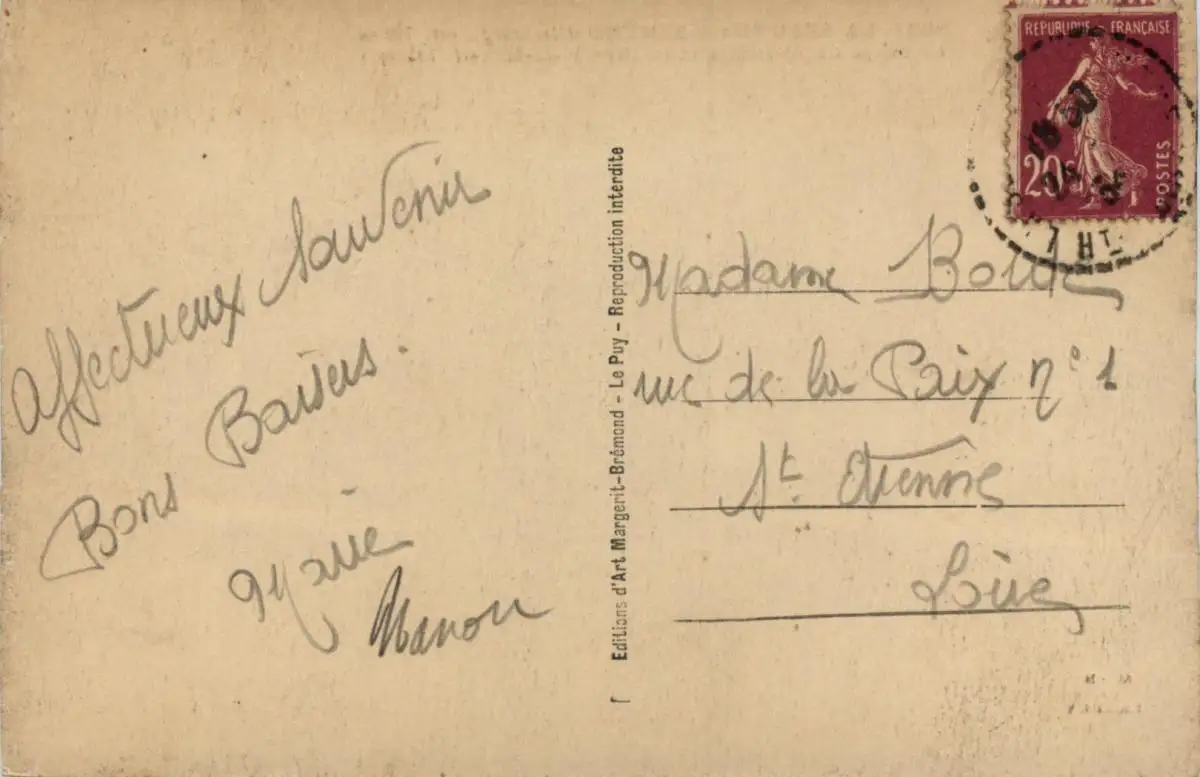 Affectueux Souvenir
Bons Baisers.
Marie
Manon
Editions d'Art Margerit-Brémond - Le Puy - Reproduction interdite
REPUBLIQUE FRANÇAISE
20c
POSTES
18 30
Madame
rue de la Paix n° 1
St. Etienne
Loire